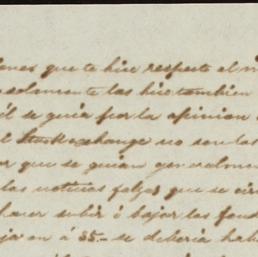 ones que te hice respecto al
solamente las hice tambien
él se guia por la opinion
l Stock exchange no son las
or que se guian generalmen
las noticias falsas que se cir
hacer subir ó bajar los fond
jaron á 35.- se deberia hab